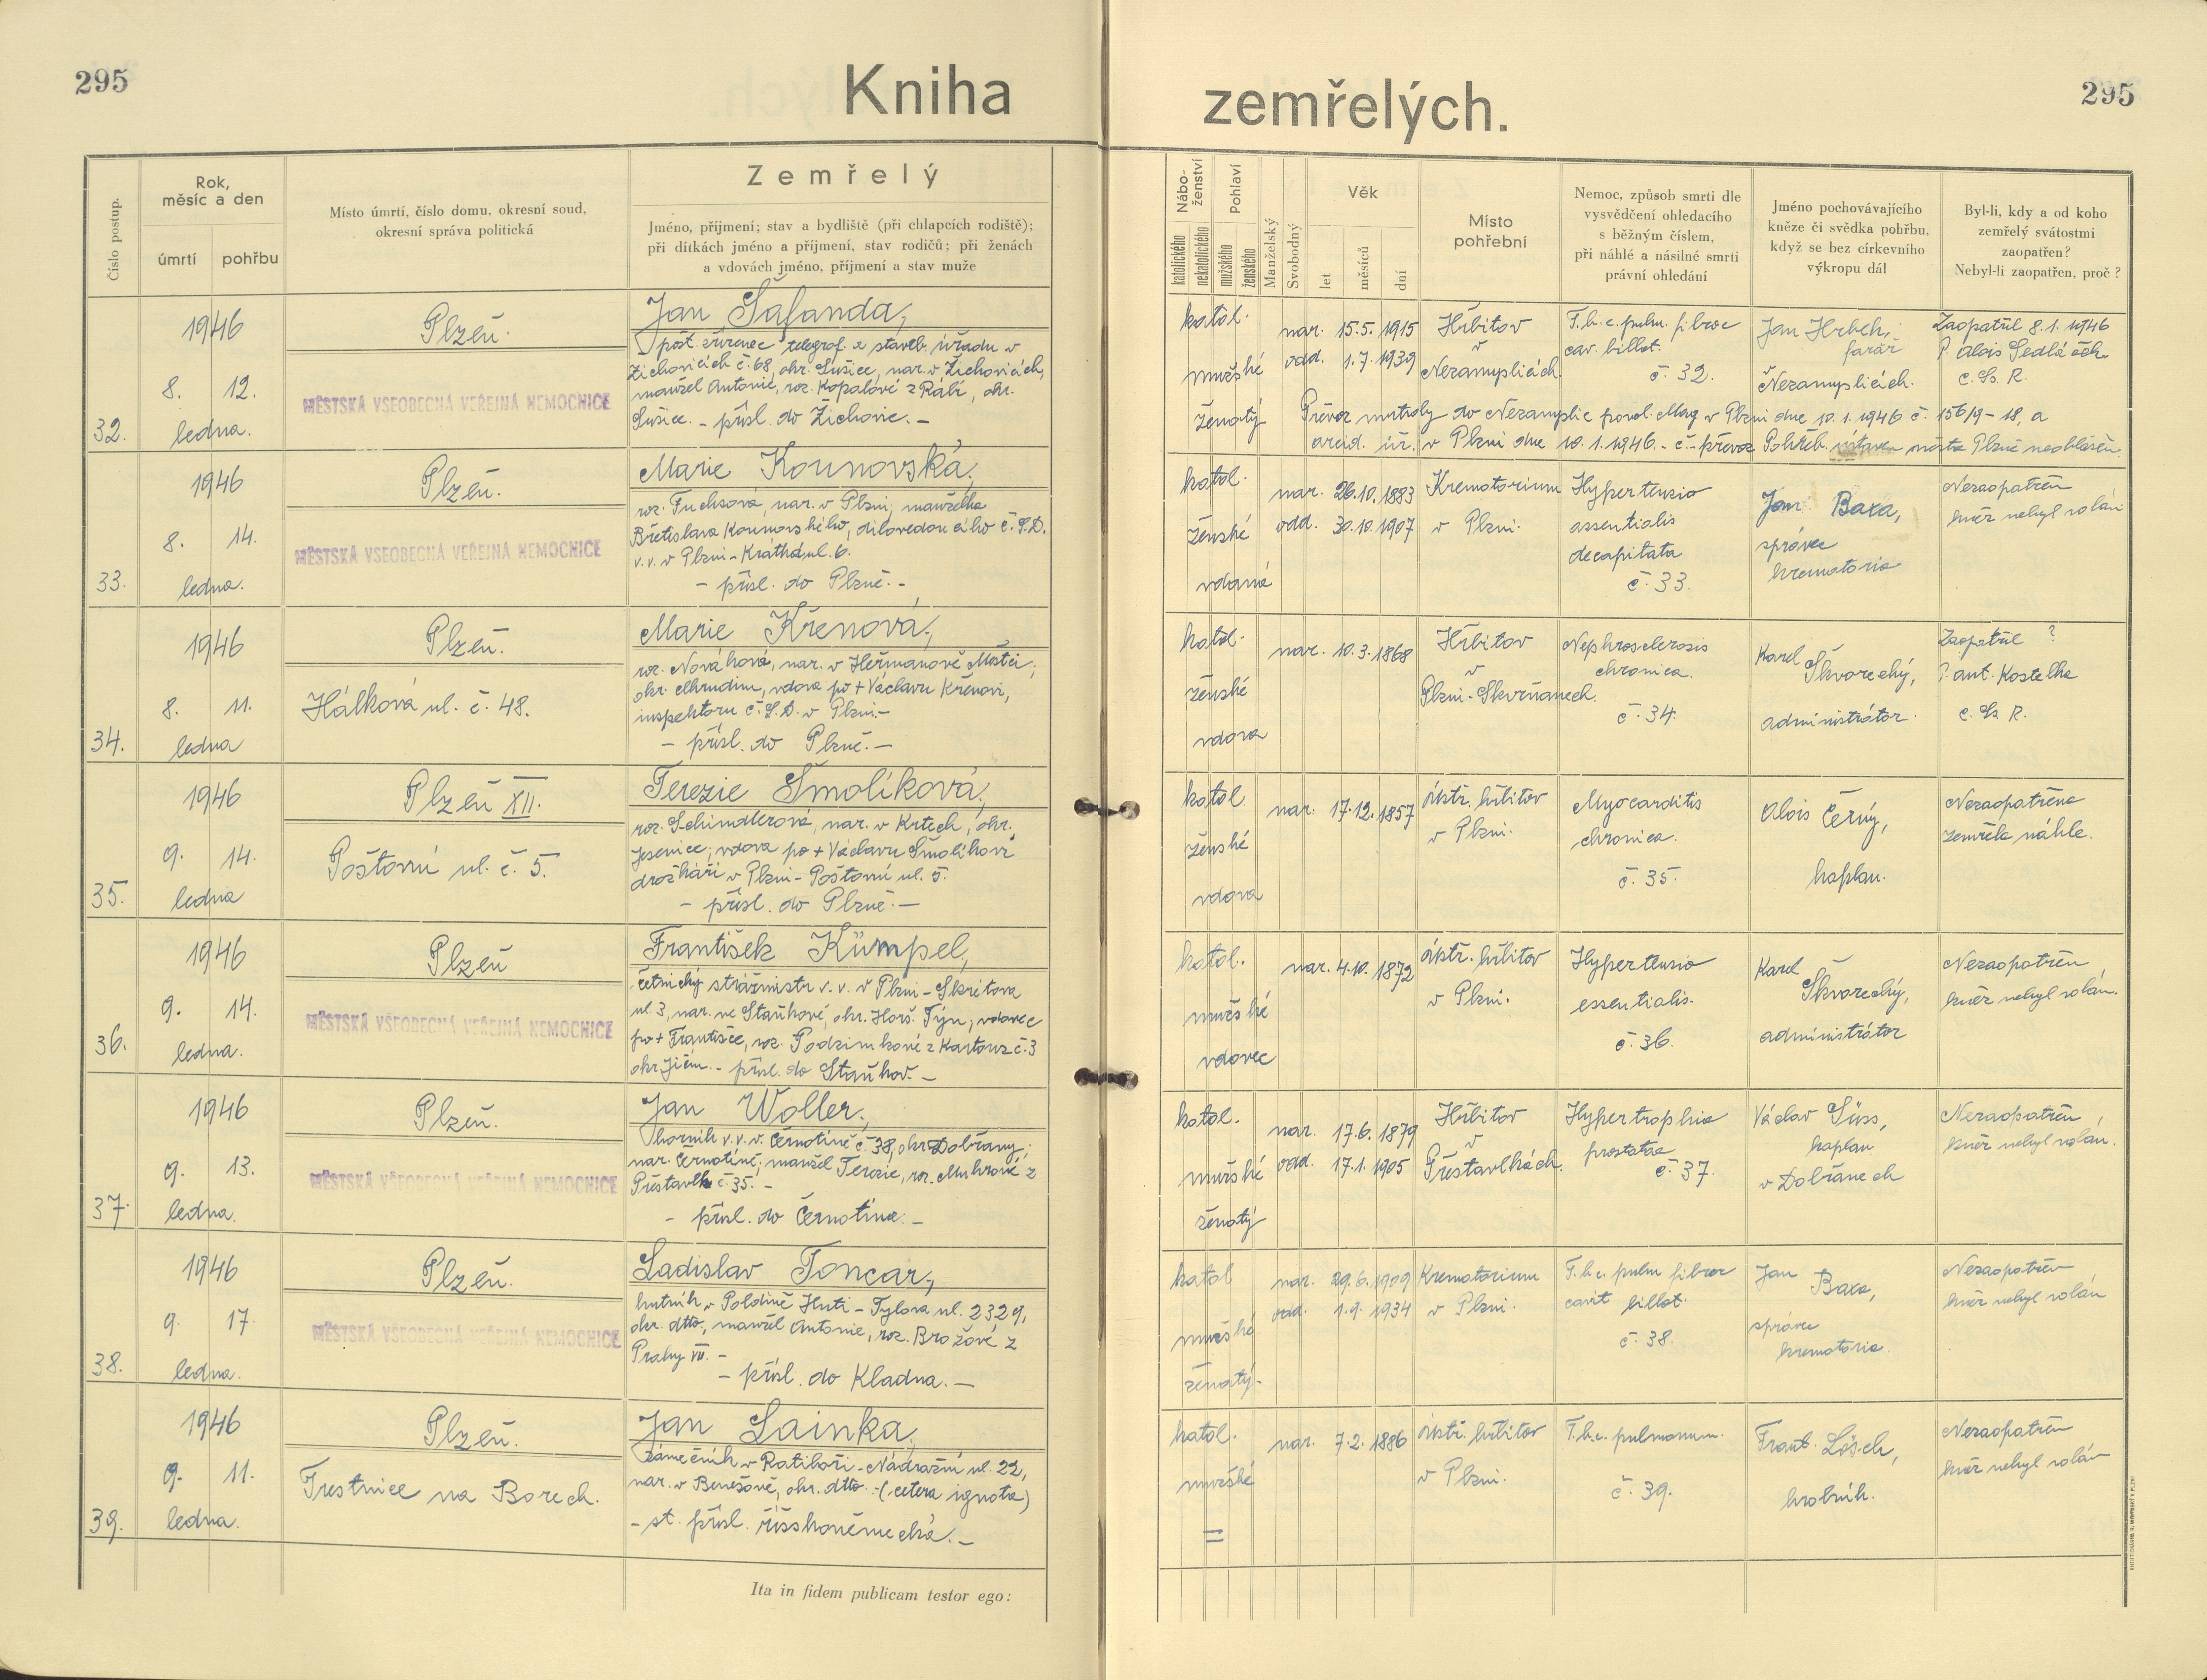 295
Kniha
zemřelých.
295
Číslo postup.
Rok,
měsíc a den
úmrtí
pohřbu
Místo úmrtí, číslo domu, okresní soud,
okresní správa politická
Zemřelý
Jméno, příjmení; stav a bydliště (při chlapcích rodiště);
při dítkách jméno a příjmení, stav rodičů; při ženách
a vdovách jméno, příjmení a stav muže
Nábo-
ženství
katolického
nekatolického
Pohlaví
mužského
ženského
Manželský
Svobodný
Věk
let
měsíců
dní
Místo
pohřební
Nemoc, způsob smrti dle
vysvědčení ohledacího
s běžným číslem,
při náhlé a násilné smrti
právní ohledání
Jméno pochovávajícího
kněze či svědka pohřbu,
když se bez církevního
výkropu dál
Byl-li, kdy a od koho
zemřelý svátostmi
zaopatřen?
Nebyl-li zaopatřen, proč?
32.
1946
8. 12.
ledna.
Plzeň.
MĚSTSKÁ VŠEOBECNÁ VEŘEJNÁ NEMOCNICE
Jan Šafanda,
pošt. zřízenec telegraf. a staveb. úřadu v
Žichovicích č. 68, okr. Sušice, nar. v Žichovicích,
manžel Antonie, roz. Kopalové z Rábí, okr.
Sušice. - přísl. do Žichovic. -
katol.
mužské
ženatý
nar. 15.5. 1915
odd. 1.7. 1939
Hřbitov
v
Nezamyslicích.
T.b.c. pulm. fibroc
cav. billat.
č. 32.
Jan Hrbek,
farář
v Nezamyslicích.
Zaopatřil 8.1.1946
P. Alois Sedláček
C. Ss. R.
Převoz mrtvoly do Nezamyslic povol. Mag. v Plzni dne 10.1.1946 č. 156/9-18, a
v Plzni dne 10.1.1946. - č. převoz Pohřeb. města Plzně
33.
1946
8. 14.
ledna.
Plzeň.
MĚSTSKÁ VŠEOBECNÁ VEŘEJNÁ NEMOCNICE
Marie Kounovská,
roz. Fuchsová, nar. v Plzni, manželka
Břetislava Kounovského, dílovedoucího Č.S.D.
v.v. v Plzni - Krátká ul. 6.
- přísl. do Plzně. -
katol.
ženské
vdaná
nar. 26.10.1883
odd. 30.10.1907
Krematorium
v Plzni.
Hypertensio
essentialis
decapitata
č. 33.
Jan Baxa,
správce
krematoria
Nezaopatřen
kněz nebyl volán
34.
1946
8. 11.
ledna
Plzeň.
Hálková ul. č. 48.
Marie Křenová,
roz. Nováková, nar. v Heřmanově Městci,
okr. Chrudim, vdova po + Václavu Křenovi,
inspektoru Č.S.D. v Plzni. -
- přísl. do Plzně. -
katol.
ženské
vdova
nar. 10.3.1868
Hřbitov
v
Plzni-Skvrňanech.
Nephrosclerosis
chronica.
č. 34.
Karel
Škvorecký,
administrátor.
Zaopatřil ?
P. Ant. Kostelka
C. Ss. R.
35.
1946
9. 14.
ledna
Plzeň XII.
Poštovní ul. č. 5.
Terezie Šmolíková,
roz. Schindlerová, nar. v Krtech, okr.
Jesenice, vdova po + Václavu Šmolíkovi
drožkáři v Plzni - Poštovní ul. 5.
- přísl. do Plzně. -
katol.
ženské
vdova
nar. 17.12.1857
ústř. hřbitov
v Plzni.
Myocarditis
chronica.
č. 35.
Alois Černý,
kaplan.
Nezaopatřena
zemřela náhle.
36.
1946
9. 14.
ledna.
Plzeň
MĚSTSKÁ VŠEOBECNÁ VEŘEJNÁ NEMOCNICE
František Kümpel,
četnický strážmistr v.v. v Plzni - Skrétova
ul. 3, nar. ve Staňkově, okr. Horš. Týn, vdovec
po + Františce, roz. Podzimkové z Kartouz č. 3
okr. Jičín. - přísl. do Staňkov. -
katol.
mužské
vdovec
nar. 4.10. 1872
ústř. hřbitov
v Plzni.
Hypertensio
essentialis.
č. 36.
Karel
Škvorecký,
administrátor
Nezaopatřen
kněz nebyl volán.
37.
1946
9. 13.
ledna.
Plzeň.
MĚSTSKÁ VŠEOBECNÁ VEŘEJNÁ NEMOCNICE
Jan Woller,
horník v.v. v Černotíně č. 38, okr. Dobřany,
nar. Černotíně, manžel Terezie, roz. Muhrové z
Přestavlk č. 35. -
- přísl. do Černotína. -
katol.
mužské
ženatý
nar. 17.6. 1879
odd. 17.1. 1905
Hřbitov
v
Přestavlkách.
Hypertrophia
prostatae
č. 37.
Václav Süss,
kaplan
v Dobřanech
Nezaopatřen,
kněz nebyl volán.
38.
1946
9. 17.
ledna.
Plzeň.
MĚSTSKÁ VŠEOBECNÁ VEŘEJNÁ NEMOCNICE
Ladislav Toncar,
hutník v Poldině Huti - Tylova ul. 2329,
okr. dtto., manžel Antonie, roz. Brožové z
Prahy VII. -
- přísl. do Kladna. -
katol
mužské
ženatý.
nar. 29.6. 1909
odd. 1.9. 1934
Krematorium
v Plzni.
T.b.c. pulm fibroc
cavit billat.
č. 38.
Jan
Baxa,
správce
krematoria.
Nezaopatřen
kněz nebyl volán
39.
1946
9. 11.
ledna.
Plzeň.
Trestnice na Borech.
Jan Lainka,
zámečník v Ratiboři - Nádražní ul. 22,
nar. v Benešově, okr. dtto. - (cetera ignota)
- st. přísl. říšskoněmecká. -
katol.
mužské
=
nar. 7.2. 1886
ústř. hřbitov
v Plzni.
T.b.c. pulmonum.
č. 39.
Frant. Lösch,
hrobník.
Nezaopatřen
kněz nebyl volán
Ita in fidem publicam testor ego: